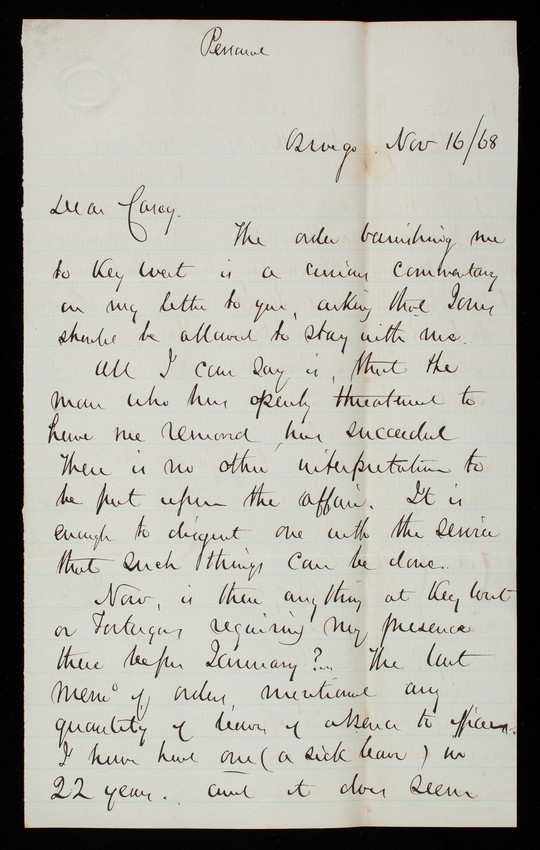 Personal
Oswego. Nov 16/68
Dear Casey.
The order banishing me
to Key West is a curious commentary
on my letter to you, asking that Jones
should be allowed to stay with me.
All I can say is, that the
man who has openly threatened to
have me removed, has succeeded
There is no other interpretation to
be put upon the affair. It is
enough to disgust one with the service
that such things can be done.
Now, is there anything at Key West
or Tortugas requiring my presence
there before January? .. The last
Memo of orders, mentioned any
quantity of leaves of absence to officers.
I have had one (a sick leave) in
22 years. and it does seem